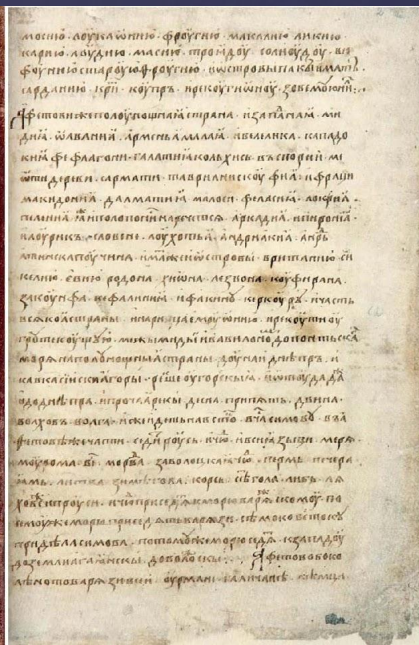 мосию · лоукаѡнию · фроугию · макалию · ликию
карию · лоудию · масию · троидоу · солоудоу · ви
фоунию староую фроугию · ѡстровы пакы имать
сарданию · крит · коупръ · и рекоу гиѡноу · зовемоую нилъ
Афетови же полоунощнаıа страна · и западнаıа · ми
диıа · ѡлваниıа · арменьıа малаıа · и великаıа · кападо
киıа фефлагони · галатиıа кольхись · въспории · ме
ѡти дереви · сармати · тавриани скоуфиıа · и фраци
макидониıа · далматиıа малоси · фесалиıа · локриıа
аркадиıа
илоурикъ · словене · лоухотиıа · андриакиıа · андрѣ
атиньска поучина · имать же и ѡстровы · вританию си
келию · евию родона · хиѡна · лезвона · коуфирана ·
закоунфа · кефалиниıа · ифакину керкоуроу · и часть
всѧкоıа страны · и нарицаемоую ѡнию · и рекоу тигроу
текоущюю · межи миды и вавилономь до понтьска
морѧ на полоунощныıа страны · доунаи днѣстръ · и
кавкасиискыıа горы · рекше оугорскыıа и ѿтоуда
до днѣпра · и протчаıа рекы · десна · припеть · двина ·
волховъ · волга · иже идеть на въстокъ в часть симову · въ а
фетови же части · сѣдить роусь · чюдь · и вси ıазыци · мерѧ
моурома · всь · мордва · заволочьскаıа чюдь · пермь · печера
ıамь · литва · зимѣгола · корсь · сѣтгола · либь · лѧ
ховѣ и проуси · и чюдь присѣдѧть к морю варѧскомоу · по
семоу же морю присѣдѧть варѧзи · сѣмо к въстокоу
до предѣла симова · по томоу же морю сѣдѧть къ западоу
до землѣ агалѧньскы · и до волошьскые · Афетово бо ко
лѣно то варѧзи свеи · оурмане · галичане · нѣмци